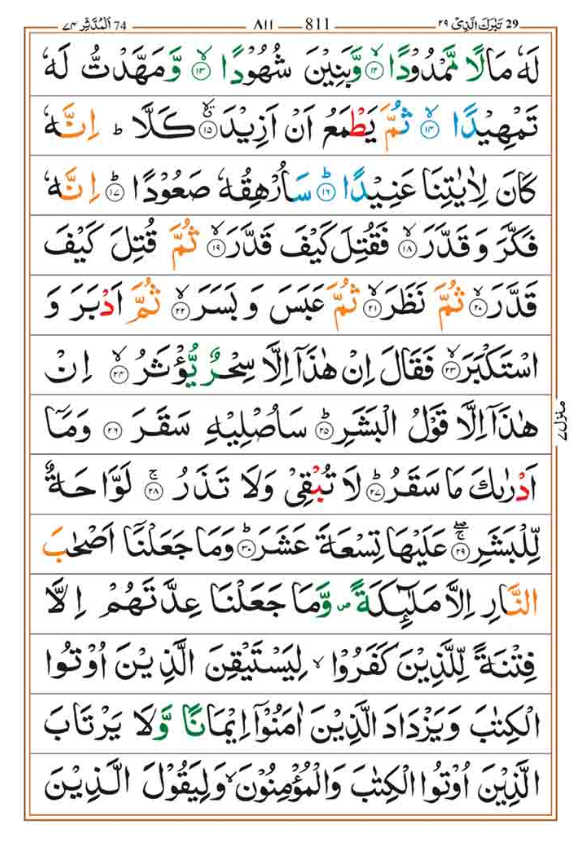 المدثر ٧٤ 74 A11 811 تبٰرك الذی ٢٩ 29
لَهٗ مَالًا مَّمْدُوْدًا ۙ﴿۱۲﴾ وَّبَنِيْنَ شُهُوْدًا ۙ﴿۱۳﴾ وَّمَهَّدْتُّ لَهٗ
تَمْهِيْدًا ۙ﴿۱۴﴾ ثُمَّ يَطْمَعُ اَنْ اَزِيْدَ ۙ﴿۱۵﴾ كَلَّا ؕ اِنَّهٗ
كَانَ لِاٰيٰتِنَا عَنِيْدًا ؕ﴿۱۶﴾ سَاُرْهِقُهٗ صَعُوْدًا ؕ﴿۱۷﴾ اِنَّهٗ
فَكَّرَ وَ قَدَّرَ ۙ﴿۱۸﴾ فَقُتِلَ كَيْفَ قَدَّرَ ۙ﴿۱۹﴾ ثُمَّ قُتِلَ كَيْفَ
قَدَّرَ ۙ﴿۲۰﴾ ثُمَّ نَظَرَ ۙ﴿۲۱﴾ ثُمَّ عَبَسَ وَ بَسَرَ ۙ﴿۲۲﴾ ثُمَّ اَدْبَرَ وَ
اسْتَكْبَرَ ۙ﴿۲۳﴾ فَقَالَ اِنْ هٰذَاۤ اِلَّا سِحْرٌ يُّؤْثَرُ ۙ﴿۲۴﴾ اِنْ
هٰذَاۤ اِلَّا قَوْلُ الْبَشَرِ ؕ﴿۲۵﴾ سَاُصْلِيْهِ سَقَرَ ﴿۲۶﴾ وَمَاۤ
اَدْرٰىكَ مَا سَقَرُ ؕ﴿۲۷﴾ لَا تُبْقِىْ وَلَا تَذَرُ ۚ﴿۲۸﴾ لَوَّاحَةٌ
لِّلْبَشَرِ ۖۚ﴿۲۹﴾ عَلَيْهَا تِسْعَةَ عَشَرَ ؕ﴿۳۰﴾ وَمَا جَعَلْنَاۤ اَصْحٰبَ
النَّارِ اِلَّا مَلٰٓٮِٕكَةً ۖ وَّمَا جَعَلْنَا عِدَّتَهُمْ اِلَّا
فِتْنَةً لِّلَّذِيْنَ كَفَرُوْا ۙ لِيَسْتَيْقِنَ الَّذِيْنَ اُوْتُوا
الْكِتٰبَ وَيَزْدَادَ الَّذِيْنَ اٰمَنُوْۤا اِيْمَانًا وَّلَا يَرْتَابَ
الَّذِيْنَ اُوْتُوا الْكِتٰبَ وَالْمُؤْمِنُوْنَ ۙ وَلِيَقُوْلَ الَّذِيْنَ
منزل ٧